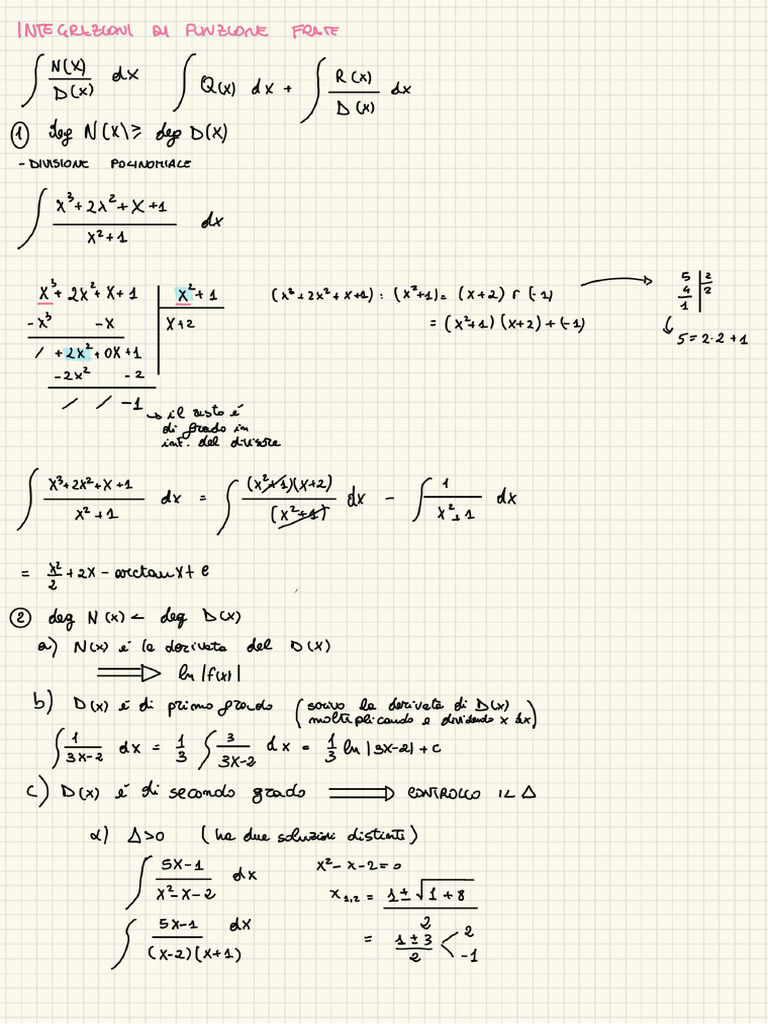 INTEGRAZIONI DI FUNZIONE FRATE
∫ N(X)/D(X) dx    ∫ Q(X) dx + ∫ R(X)/D(X) dx
① deg N(X) ≥ deg D(X)
- DIVISIONE POLINOMIALE
∫ (x³+2x²+x+1)/(x²+1) dx
x³+2x²+x+1 | x²+1
-x³ -x | x+2
/ +2x²+0x+1
-2x² -2
/ / -1 → il resto è
di grado in
int. del divisore
(x³+2x²+x+1) : (x²+1) = (x+2) r (-1)
= (x²+1)(x+2)+(-1)
5 | 2
4 | 2
1
5 = 2·2+1
∫ (x³+2x²+x+1)/(x²+1) dx = ∫ (x²+1)(x+2)/(x²+1) dx - ∫ 1/(x²+1) dx
= x²/2 + 2x - arctan x + c
② deg N(x) < deg D(x)
a) N(x) è la derivata del D(x)
⟹ ln |f(x)|
b) D(x) è di primo grado (scrivo la derivata di D(x)
moltiplicando e dividendo x dx)
∫ 1/(3x-2) dx = 1/3 ∫ 3/(3x-2) dx = 1/3 ln |3x-2| + c
c) D(x) è di secondo grado ⟹ CONTROLLO IL Δ
α) Δ>0 (ha due soluzioni distinte)
∫ (5x-1)/(x²-x-2) dx    x²-x-2=0
x₁,₂ = (1±√(1+8))/2
∫ (5x-1)/((x-2)(x+1)) dx    = (1±3)/2 < 2
-1